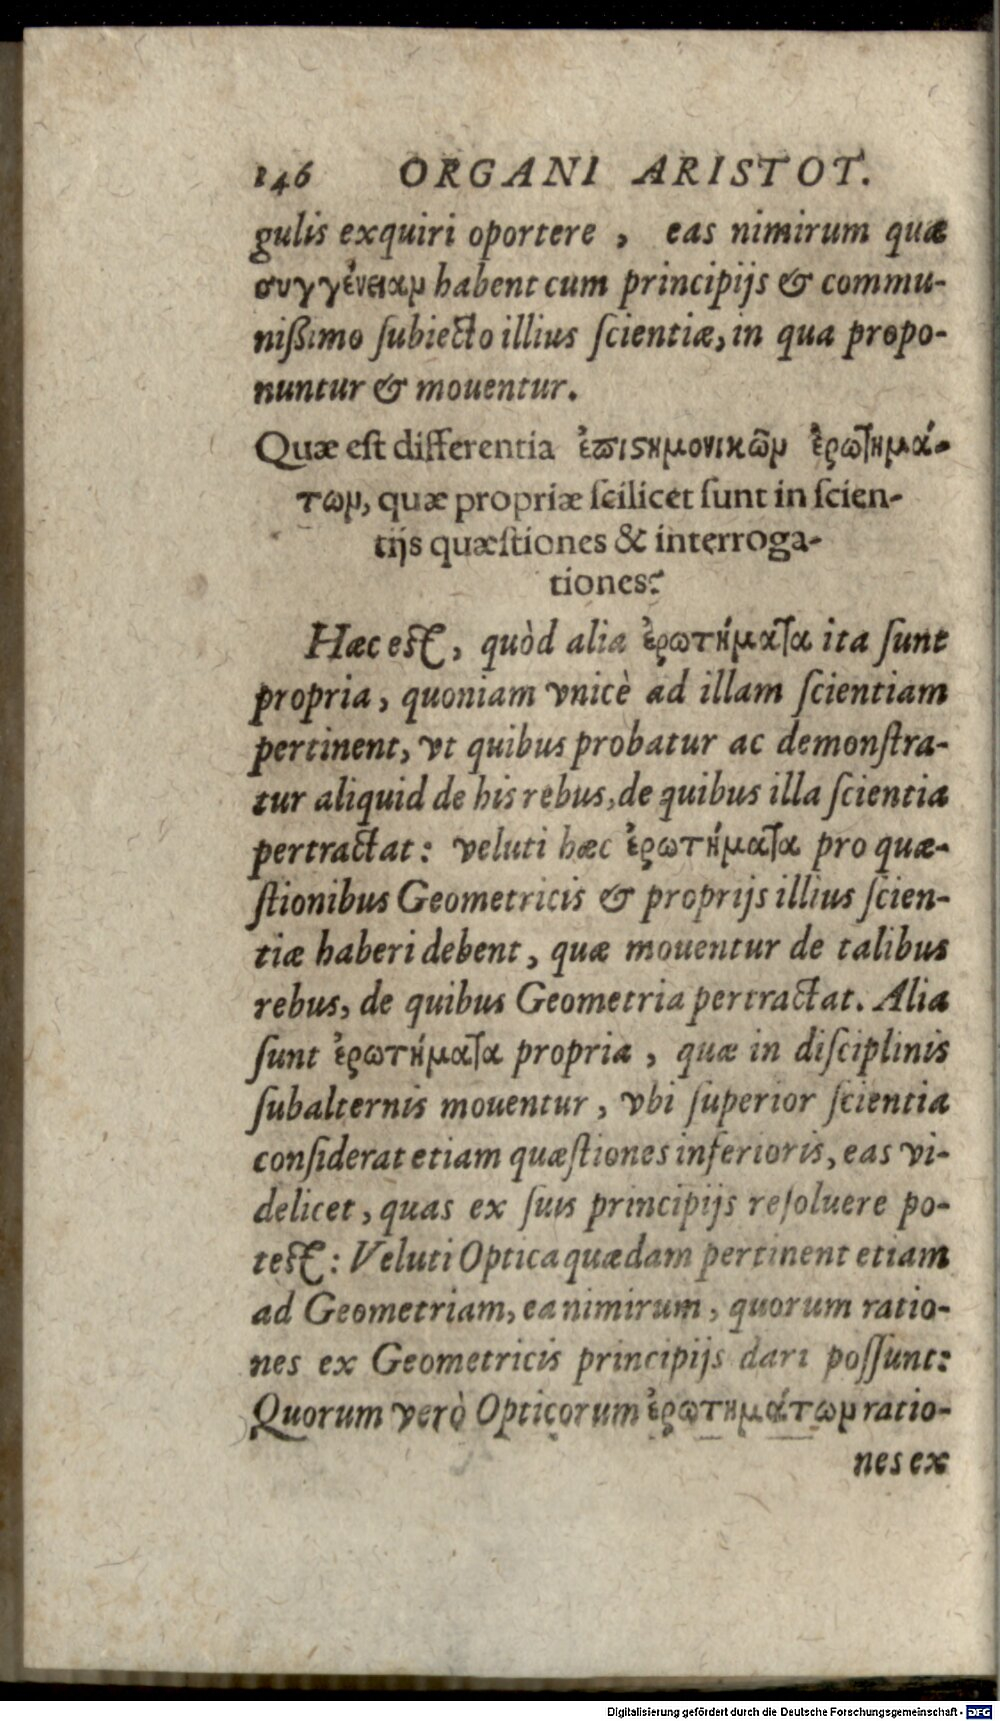 146 ORGANI ARISTOT.
gulis exquiri oportere, eas nimirum quæ
συγγένειαμ habent cum principijs & commu-
nißimo ſubiecto illius ſcientiæ, in qua propo-
nuntur & mouentur.
Quæ eſt differentia ἐπιϛημονικῶμ ἐρωτημά-
τωμ, quæ propriæ ſcilicet ſunt in ſcien-
tijs quæſtiones & interroga-
tiones?
Hæc eſt, quòd alia ἐρωτήματα ita ſunt
propria, quoniam vnicè ad illam ſcientiam
pertinent, vt quibus probatur ac demonſtra-
tur aliquid de his rebus, de quibus illa ſcientia
pertractat: veluti hæc ἐρωτήματα pro quæ-
ſtionibus Geometricis & proprijs illius ſcien-
tiæ haberi debent, quæ mouentur de talibus
rebus, de quibus Geometria pertractat. Alia
ſunt ἐρωτήματα propria, quæ in diſciplinis
ſubalternis mouentur, vbi ſuperior ſcientia
conſiderat etiam quæſtiones inferioris, eas vi-
delicet, quas ex ſuis principijs reſoluere po-
teſt: Veluti Optica quædam pertinent etiam
ad Geometriam, ea nimirum, quorum ratio-
nes ex Geometricis principijs dari poſſunt:
Quorum verò Opticorum ἐρωτημάτωμ ratio-
nes ex
Digitalisierung gefördert durch die Deutsche Forschungsgemeinschaft - DFG